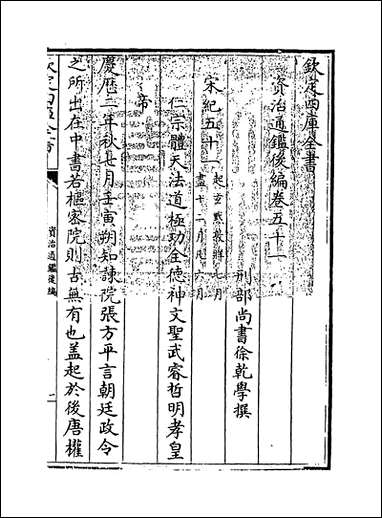 欽定四庫全書
資治通鑑後編卷五十一
刑部尚書徐乾學撰
宋紀五十一
起玄黓敦牂七月
盡十二月凡六月
仁宗體天法道極功全德神文聖武睿哲明孝皇
帝
慶歷二年秋七月壬寅朔知諫院張方平言朝廷政令
之所出在中書若樞密院則古無有也蓋起於後唐權
欽定四庫全書
資治通鑑後編
一